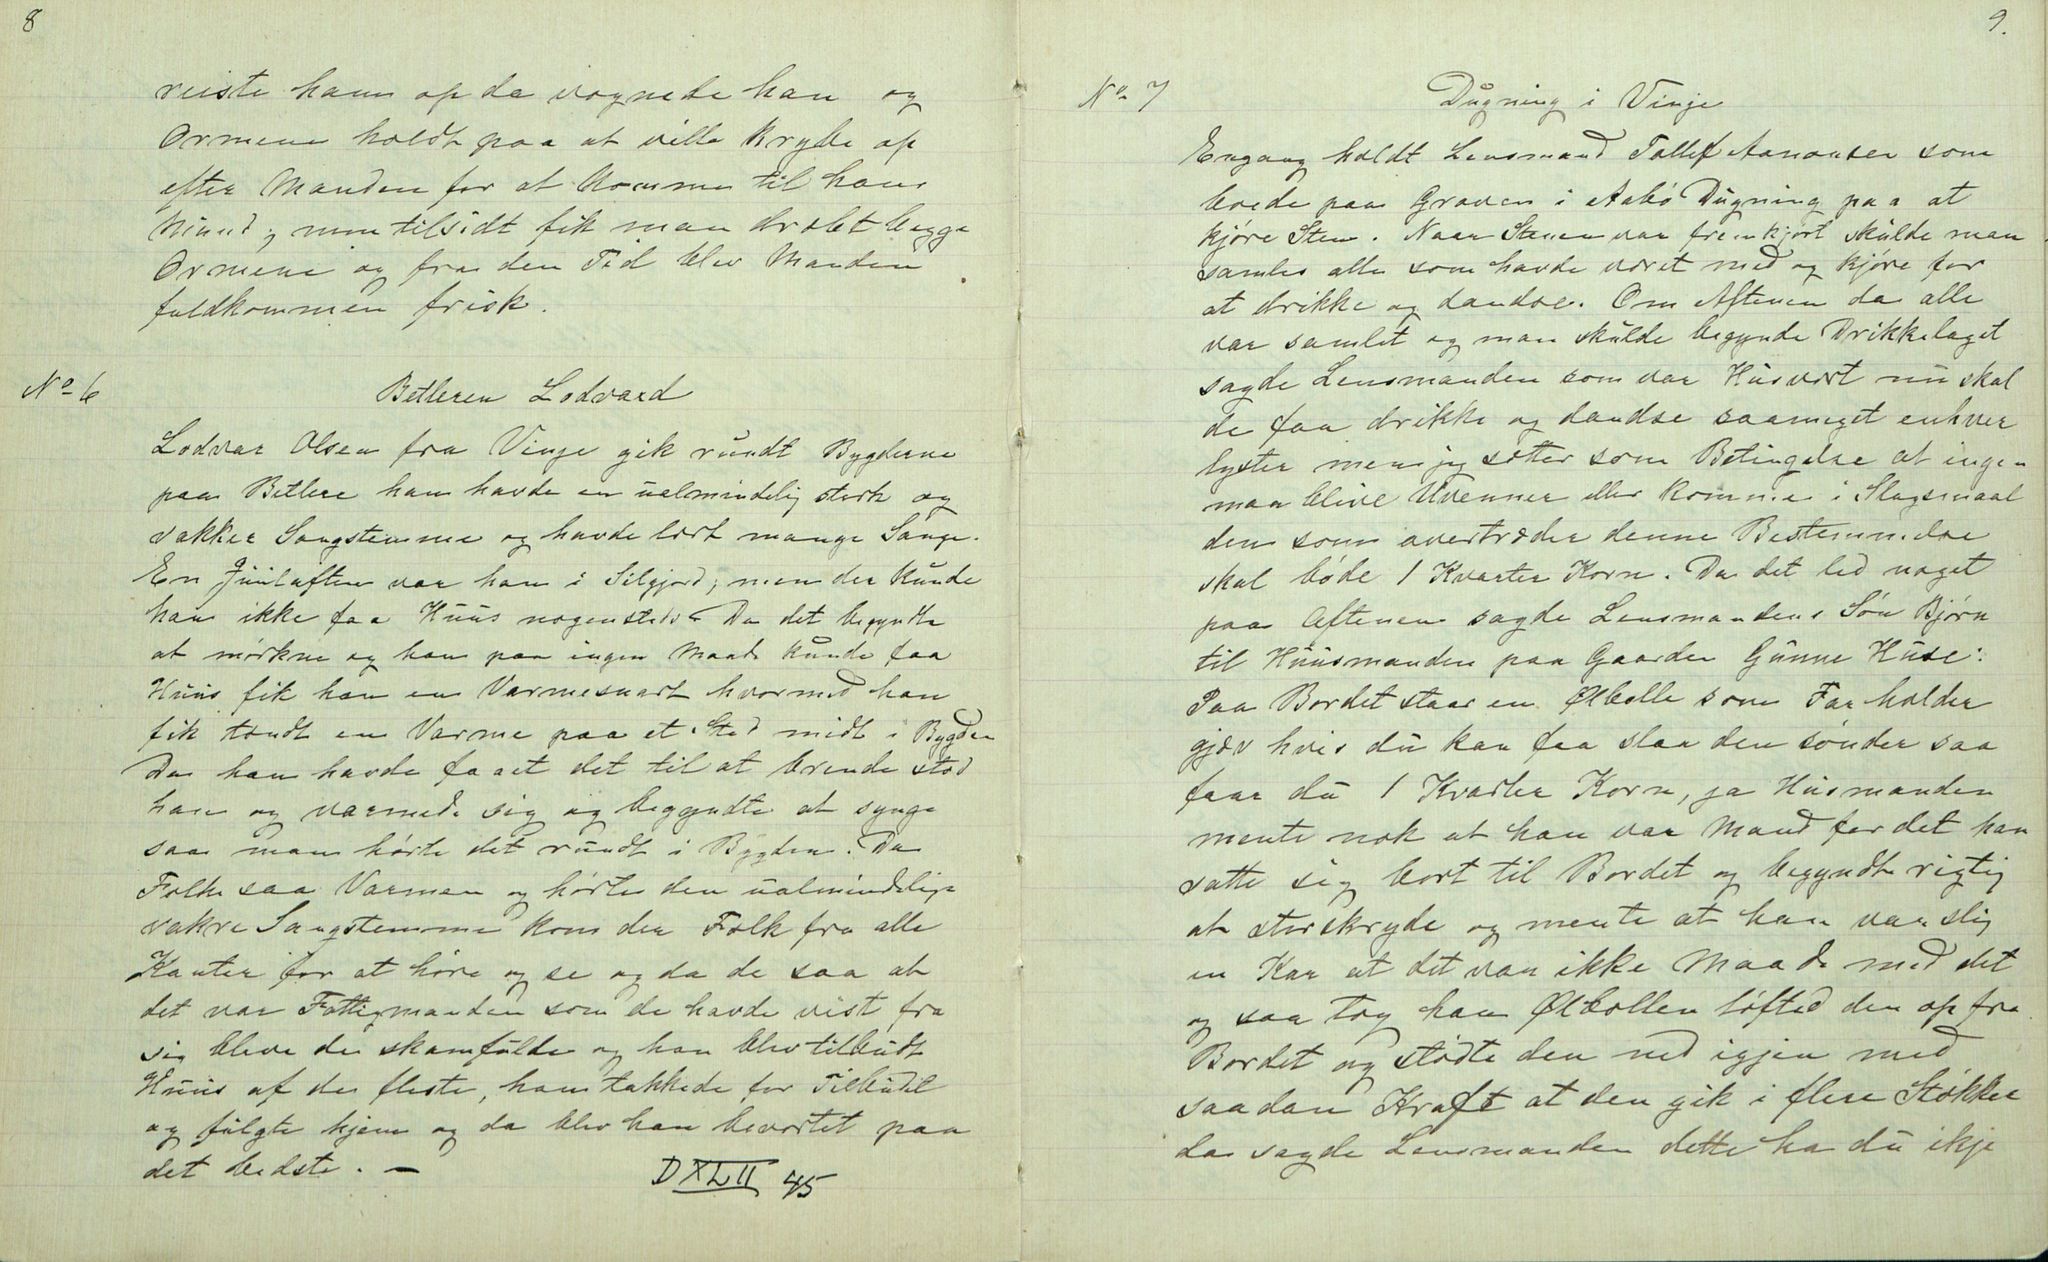 8
reiste ham op da vognede han og
Ormene holdt paa at ville krybe op
efter Manden for at komme til hans
Mund; men tilsidt fik man dræbt begge
Ormene og fra den Tid blev Manden
fuldkommen frisk.
No 6
Betleren Lodvard
Lodvar Olsen fra Vinje gik rundt Bygderne
paa Betlere han havde en ualmindelig sterk og
vakker Sangstemme og havde lært mange Sange.
En Juulaften var han i Silgjord; men der kunde
han ikke faa Huus nogensteds. Da det begyndte
at mørkne og han paa ingen Maade kunde faa
Huus fik han en Varmesnart hvormed han
fik tændt en Varme paa et Sted midt i Bygden
Da han havde faaet det til at brende stod
han og varmede sig og begyndte at synge
saa man hørte det rundt i Bygden. Da
Folk saa Varmen og hørte den ualmindelige
vakre Sangstemme kom der Folk fra alle
Kanter for at høre og se og da de saa at
det var Fattigmanden som de havde vist fra
sig bleve de skamfulde og han blev tilbudt
Huus af de fleste, han takkede for Tilbudet
og fulgte hjem og da blev han bevertet paa
det bedste. —
DXLII 45
9.
No 7
Dugning i Vinje
Engang holdt Lensmand Tollef Aanonsen som
boede paa Graven i Aabø Dugning paa at
kjøre Sten. Naar Stenen var fremkjørt skulde man
samles alle som havde været med og kjøre for
at drikke og dandse. Om Aftenen da alle
var samlet og man skulde begynde Drikkelaget
sagde Lensmanden som var Husvert nu skal
de faa drikke og dandse saameget enhver
lyster men jeg sætter som Betingelse at ingen
maa blive Uvenner eller komme i Slagsmaal
den som overtræder denne Bestemmelse
skal bøde 1 Kvarter Korn. Da det led noget
paa Aftenen sagde Lensmandens Søn Bjørn
til Huusmanden paa Gaarden Gunne Huse:
Paa Bordet staar en Ølbolle som Far holder
gjæv hvis du kan faa slaa den sønder saa
faar du 1 Kvarter Korn, ja Husmanden
mente nok at han var Mand for det han
satte sig bort til Bordet og begyndte rigtig
at storskryde og mente at han var slig
en Kar at det var ikke Maade med det
og saa tog han Ølbollen løfted den op fra
Bordet og stødte den ned igjen med
saadan Kraft at den gik i flere Støkker
da sagde Lensmanden dette ha du ikje